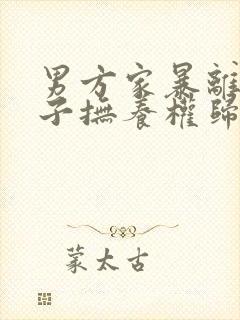 男方家暴離
子撫養權歸
蒙太古